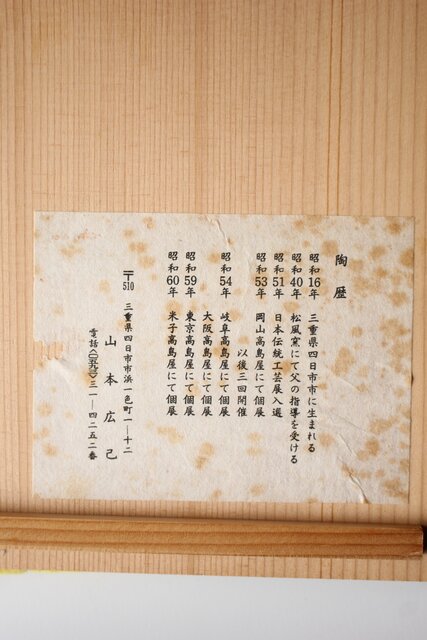 陶歴
昭和16年 三重県四日市市に生まれる
昭和40年 松風窯にて父の指導を受ける
昭和51年 日本伝統工芸展入選
昭和53年 岡山高島屋にて個展
以後三回開催
昭和54年 岐阜高島屋にて個展
大阪高島屋にて個展
昭和59年 東京高島屋にて個展
昭和60年 米子高島屋にて個展
〒510 三重県四日市市浜一色町一ー十二
山本広己
電話(〇五九三)三一ー四二五二番